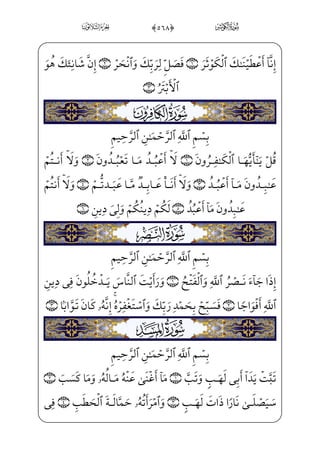 ﴿٥٦٨﴾
إِنَّآ أَعْطَيْنَـٰكَ ٱلْكَوْثَرَ ۝ فَصَلِّ لِرَبِّكَ وَٱنْحَرْ ۝ إِنَّ شَانِئَكَ هُوَ
ٱلْأَبْتَرُ ۝
سُورَةُ الكَافِرُونَ
بِسْمِ ٱللَّهِ ٱلرَّحْمَـٰنِ ٱلرَّحِيمِ
قُلْ يَـٰٓأَيُّهَا ٱلْكَـٰفِرُونَ ۝ لَآ أَعْبُدُ مَا تَعْبُدُونَ ۝ وَلَآ أَنتُمْ
عَـٰبِدُونَ مَآ أَعْبُدُ ۝ وَلَآ أَنَا۠ عَابِدٌ مَّا عَبَدتُّمْ ۝ وَلَآ أَنتُمْ
عَـٰبِدُونَ مَآ أَعْبُدُ ۝ لَكُمْ دِينُكُمْ وَلِىَ دِينِ ۝
سُورَةُ النَّصْرِ
بِسْمِ ٱللَّهِ ٱلرَّحْمَـٰنِ ٱلرَّحِيمِ
إِذَا جَآءَ نَصْرُ ٱللَّهِ وَٱلْفَتْحُ ۝ وَرَأَيْتَ ٱلنَّاسَ يَدْخُلُونَ فِى دِينِ
ٱللَّهِ أَفْوَاجًا ۝ فَسَبِّحْ بِحَمْدِ رَبِّكَ وَٱسْتَغْفِرْهُ ۚ إِنَّهُۥ كَانَ تَوَّابًۢا ۝
سُورَةُ المَسَدِ
بِسْمِ ٱللَّهِ ٱلرَّحْمَـٰنِ ٱلرَّحِيمِ
تَبَّتْ يَدَآ أَبِى لَهَبٍ وَتَبَّ ۝ مَآ أَغْنَىٰ عَنْهُ مَالُهُۥ وَمَا كَسَبَ ۝
سَيَصْلَىٰ نَارًا ذَاتَ لَهَبٍ ۝ وَٱمْرَأَتُهُۥ حَمَّالَةَ ٱلْحَطَبِ ۝ فِى